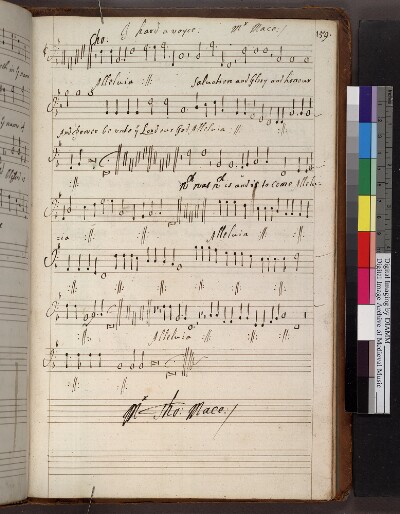 Cho: I hard a voyce: Mr Mace:/ 159.
Alleluia :||: Saluation and Glory and honour
And power be unto ye Lord our God Alleluia :||: :||:
:||: wch was wch is and is to come Allelu-
ia :||: :||: Alleluia :||: :||:
:||: :||: :||: :||: :||: :||:
:||: :||: Alleluia :||: :||: :||:
:||: :||:
Mr Tho: Mace:/
Digital Imaging by DIAMM
Digital Image Archive of Medieval Music